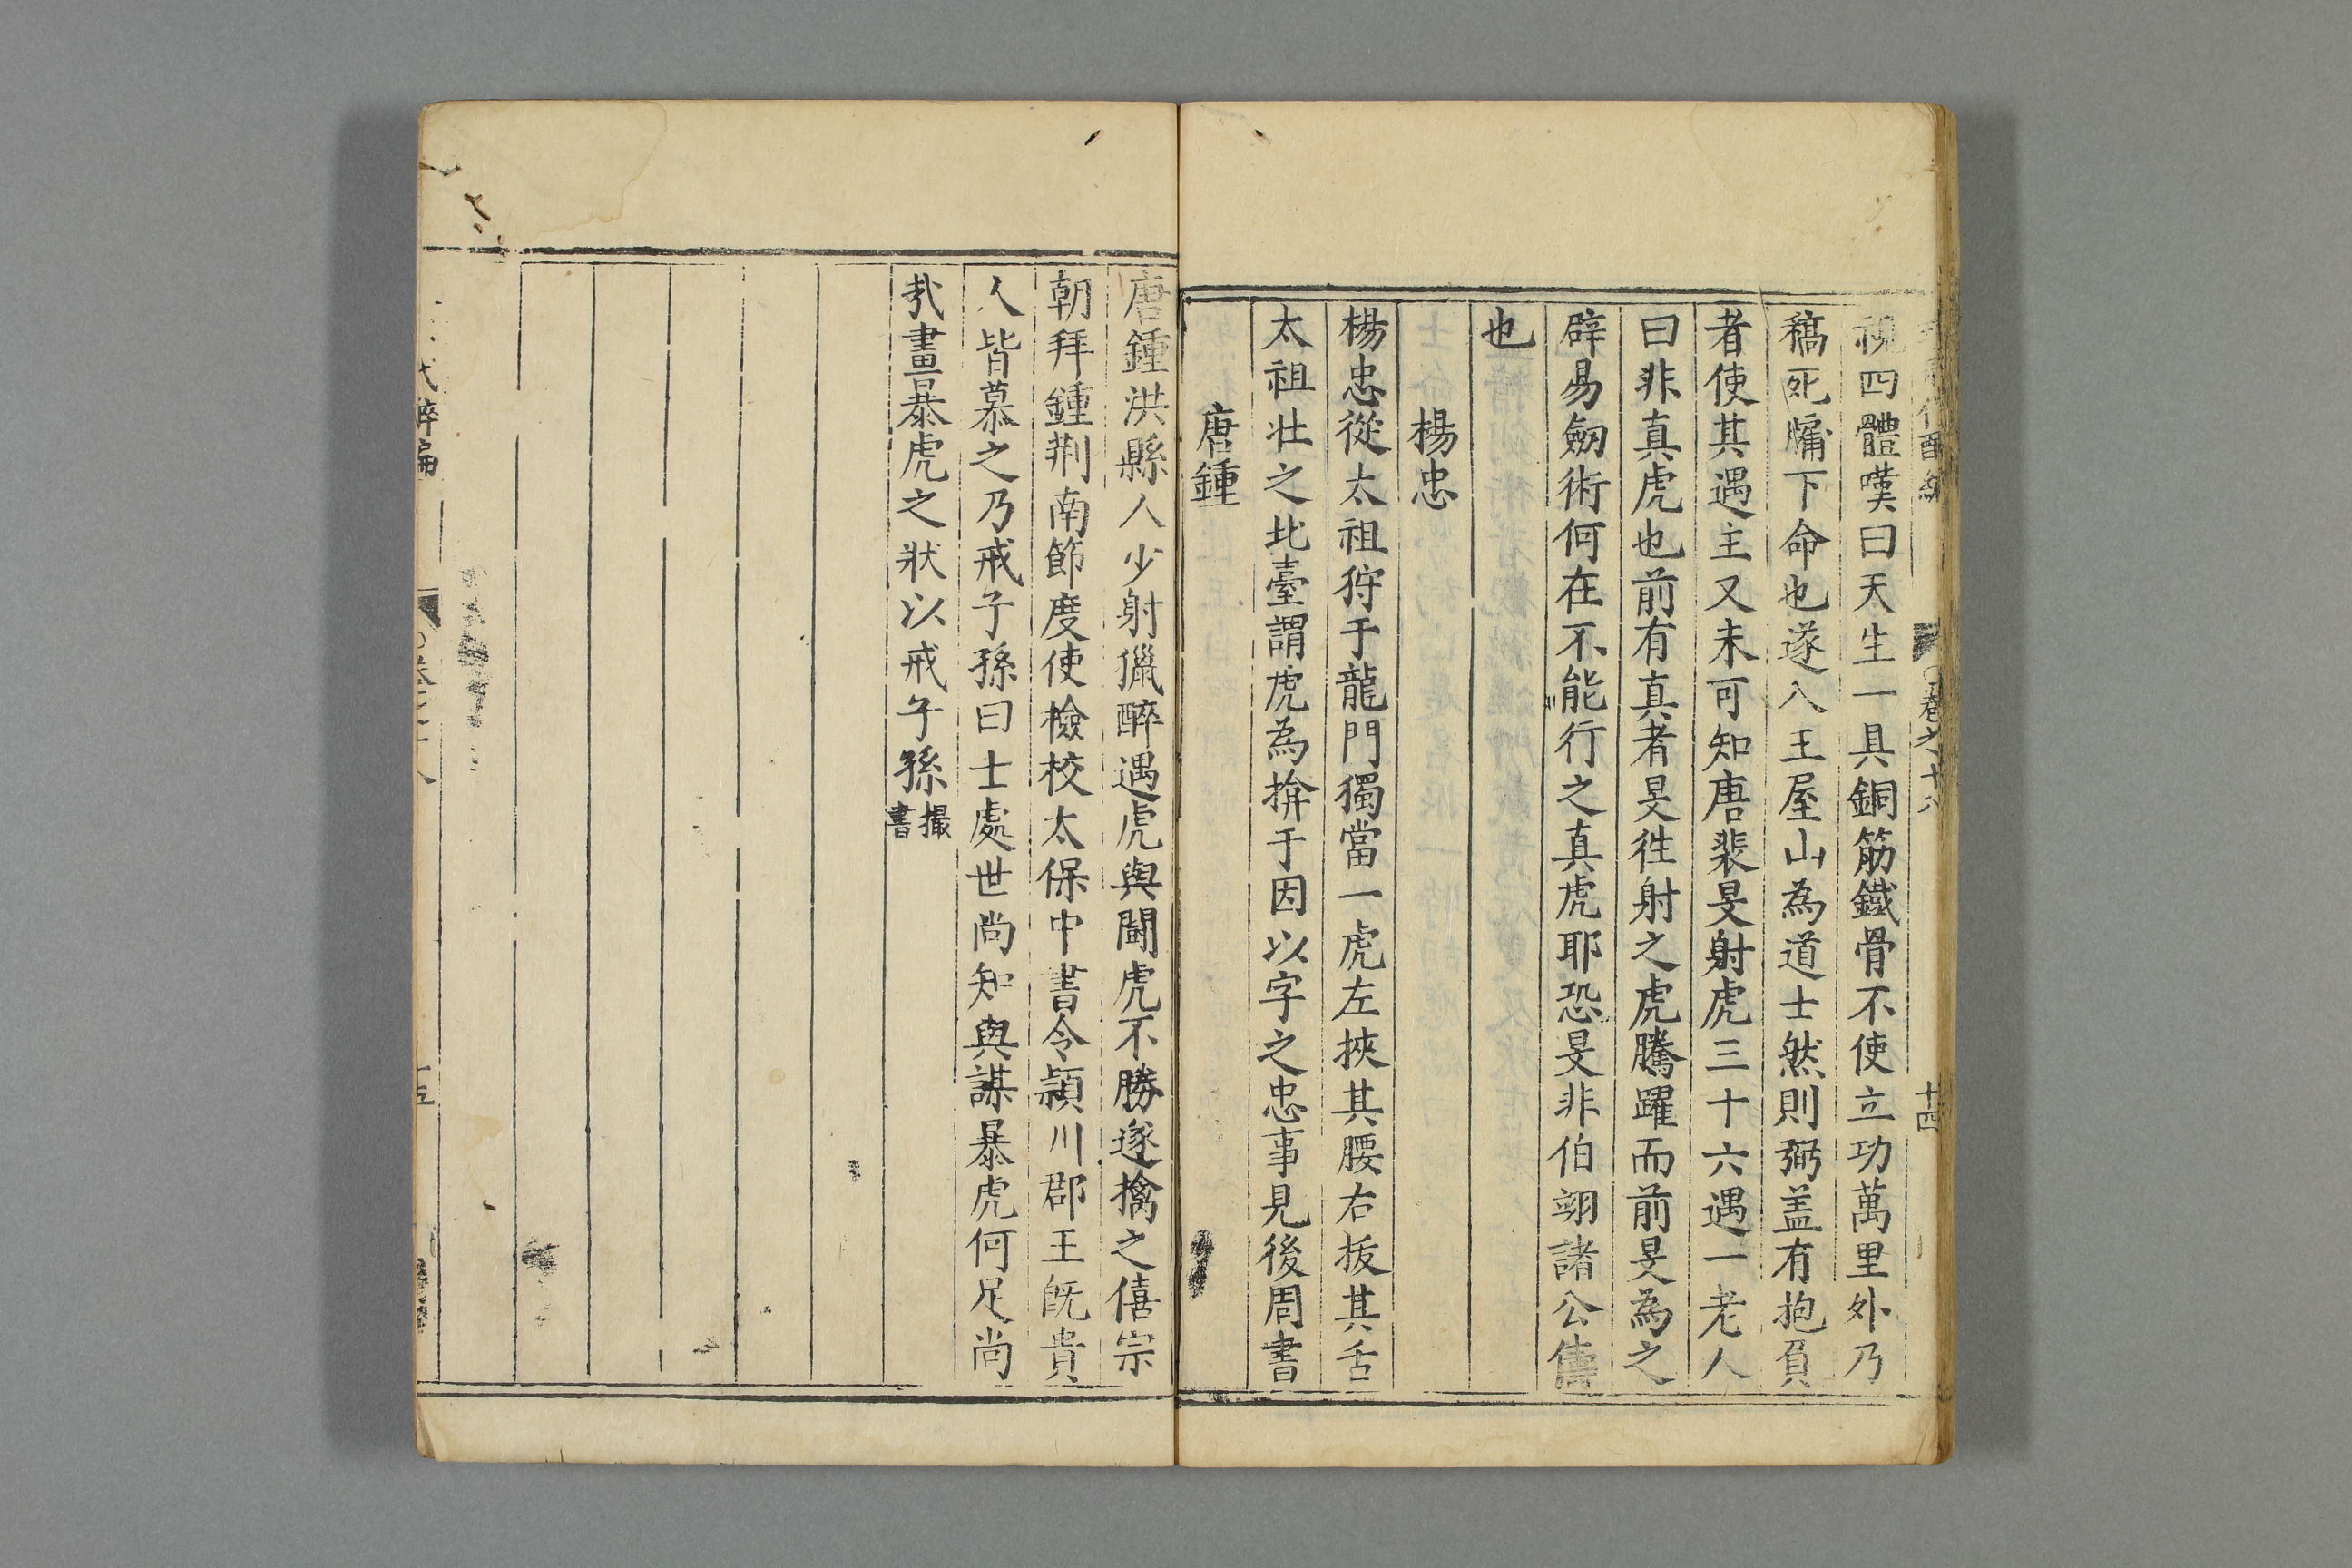 視四體嘆曰天生一具銅筋鐵骨不使立功萬里外乃
稿死牖下命也遂入王屋山為道士然則弼盖有抱負
者使其遇主又未可知唐裴旻射虎三十六遇一老人
曰非真虎也前有真者旻徃射之虎騰躍而前旻為之
辟易劒術何在不能行之真虎耶恐旻非伯翊諸公儔
也
楊忠
楊忠從太祖狩于龍門獨當一虎左挾其腰右拔其舌
太祖壮之北臺謂虎為揜于因以字之忠事見後周書
唐鍾
唐鍾洪縣人少射獵醉遇虎與鬭虎不勝遂擒之僖宗
朝拜鍾荆南節度使檢校太保中書令潁川郡王既貴
人皆慕之乃戒子孫曰士處世尚知與謀暴虎何足尚
哉畫暴虎之狀以戒子孫撮書
卷之十八
十四